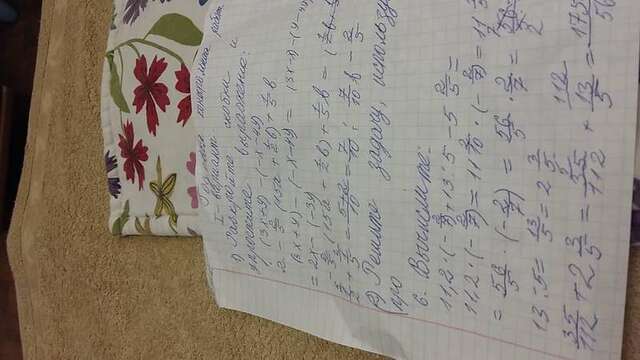 Годовая контрольная работ
I-вариант.
1) Раскройте скобки и
упростите выражение:
1. (3x+y)-(-x-4y)
2. -2/5(15a+1/2b)+1/5b
(3x+y)-(-x-4y)=(3x-x)-(y-4y
=2x-(-3y
-2/5(15a+1/2b)+1/5b=(1/2b+1/5
1/2+1/5=5+2/10=7/10; 7/10b-2/5
2) Решите задачу, использу
про
6. Вычислите:
11,2·(-2/7)+13:5-5 2/5=
11,2·(-2/7)=11 2/10·(-2/7)=11
=56/5·(-2/7)=56/5·2/7=
13:5=13/5=2 3/5
35/112+2 3/5=35/112+13/5=175
56